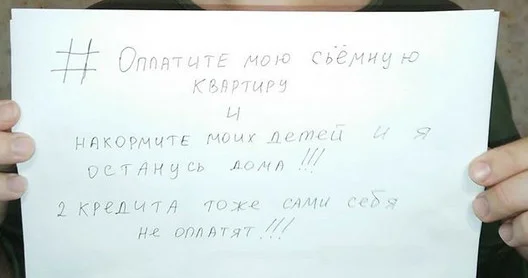 # Оплатите мою съёмную
квартиру
и
накормите моих детей и я
останусь дома!!!
2 кредита тоже сами себя
не оплатят!!!